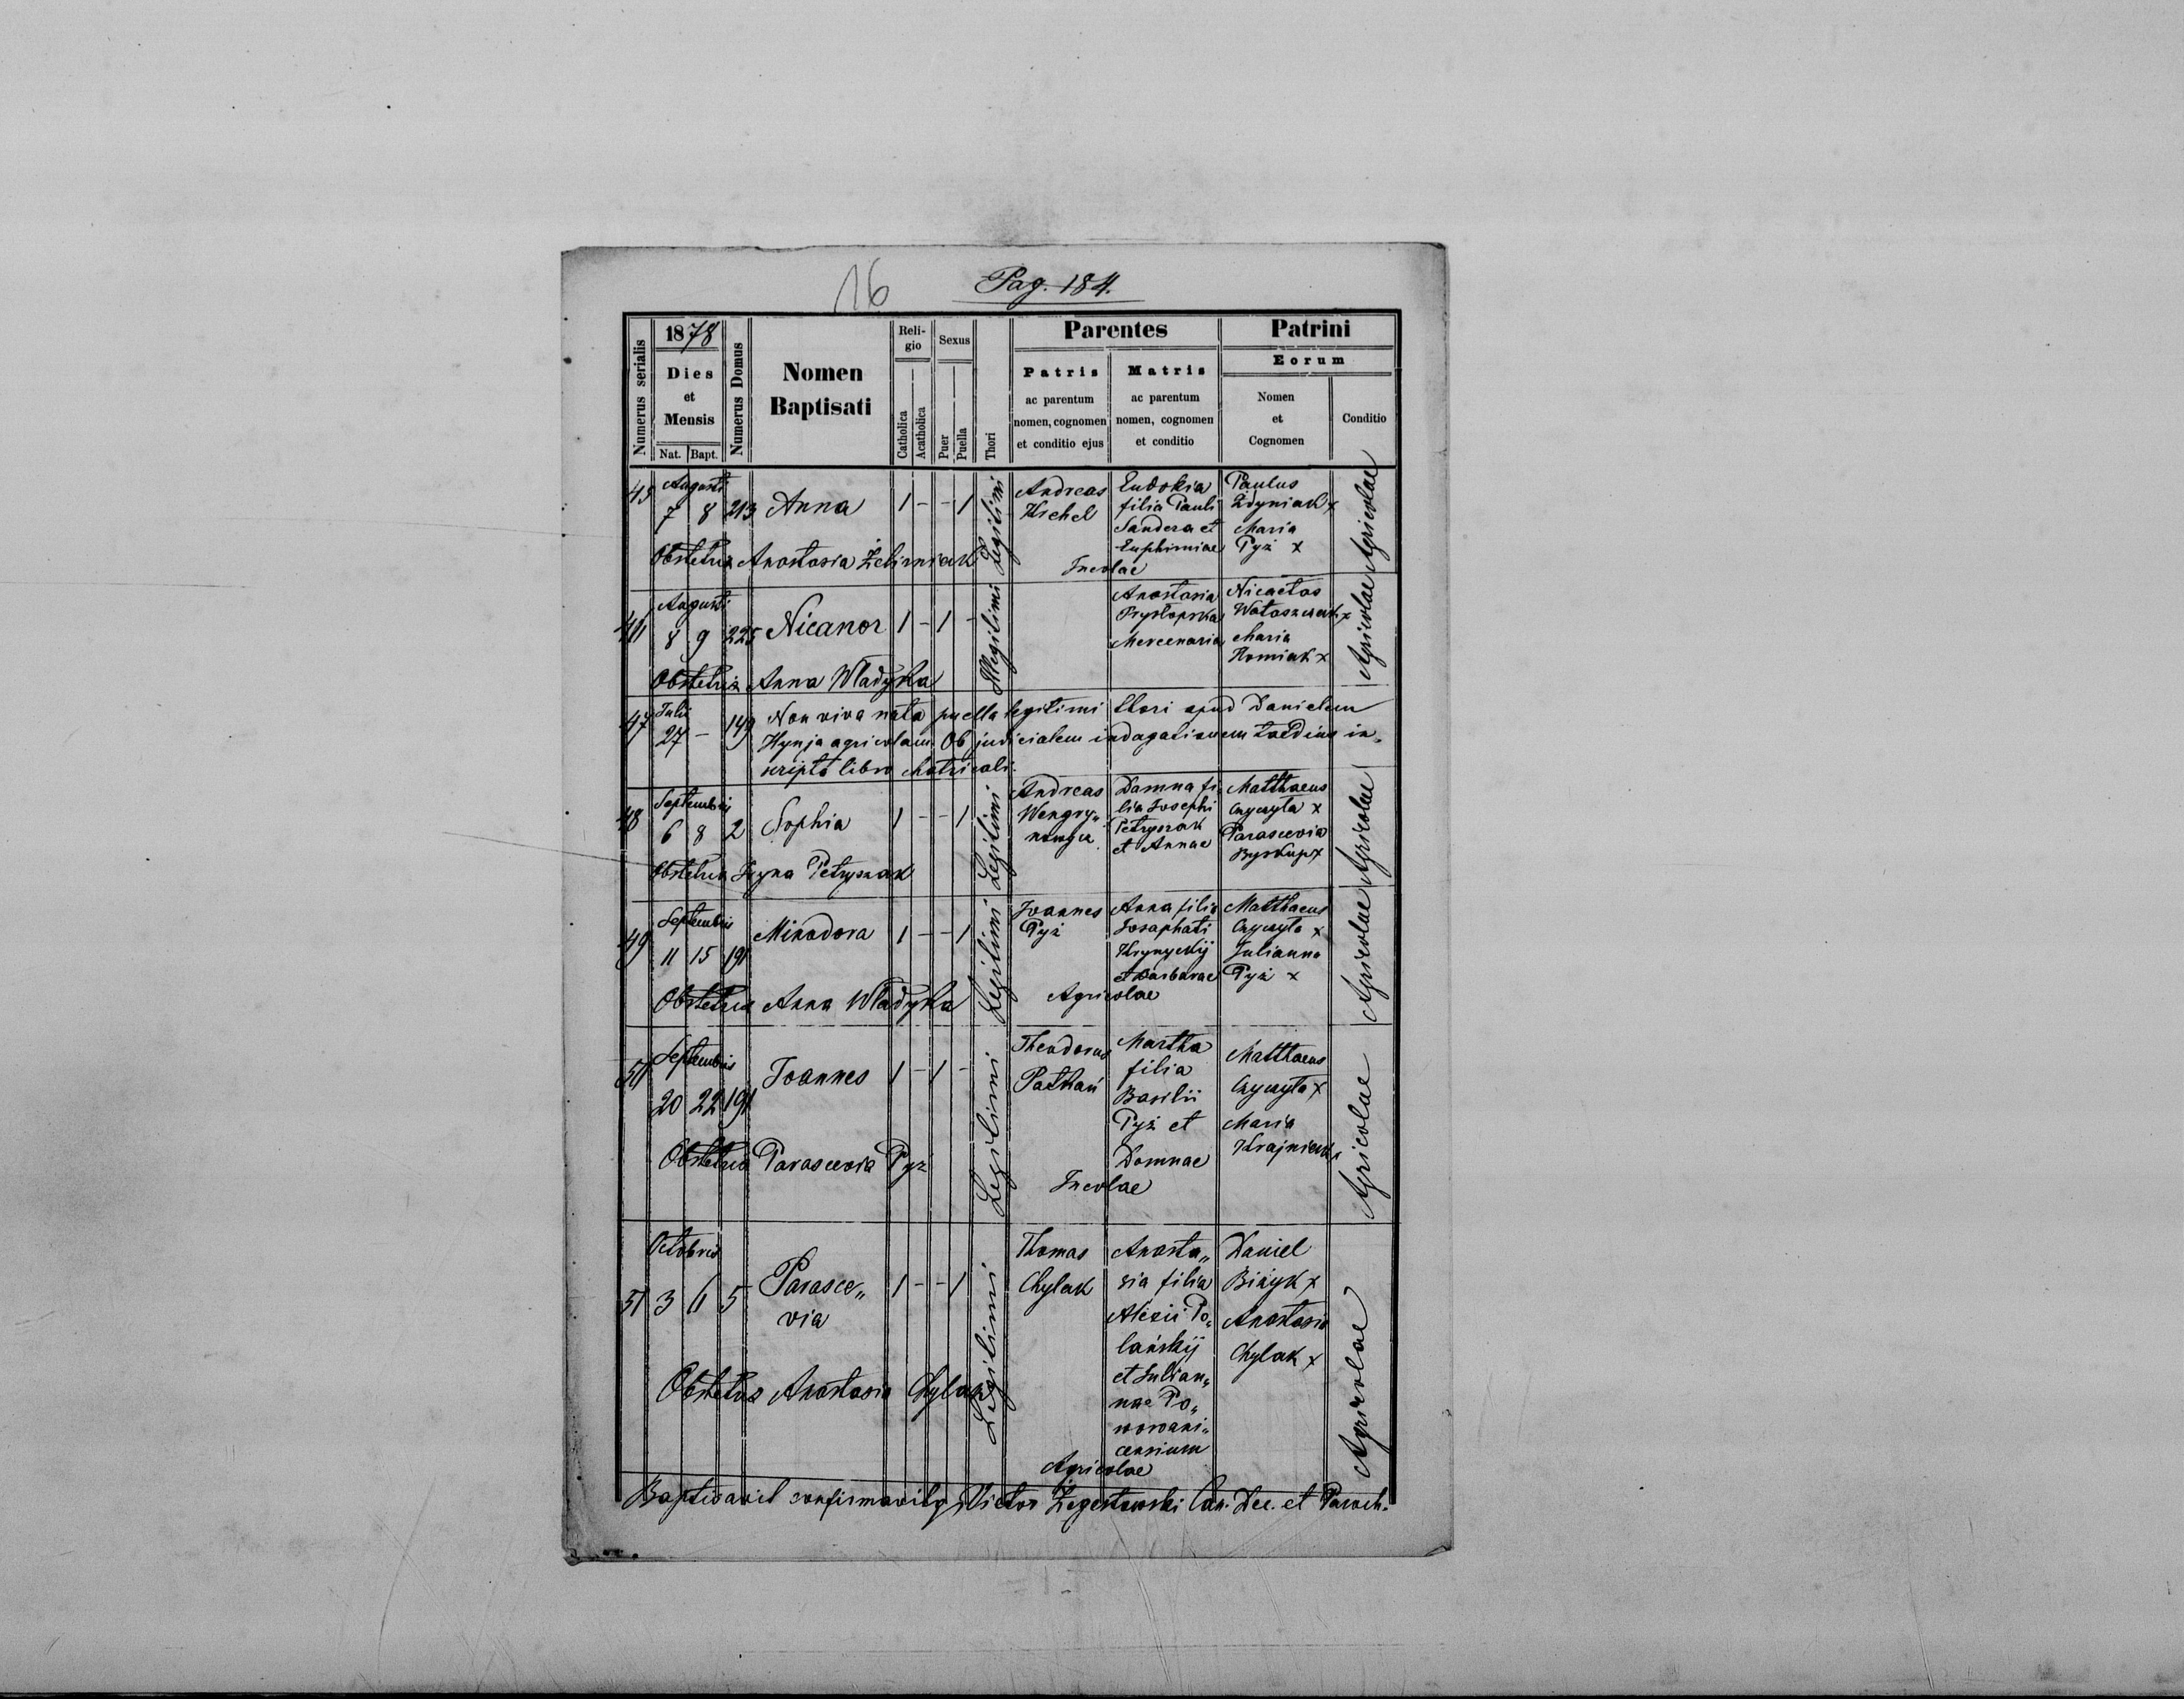 16
Pag. 184.
Numerus serialis
1878
Dies
et
Mensis
Nat. Bapt.
Numerus Domus
Nomen
Baptisati
Reli-
gio
Catholica
Acatholica
Sexus
Puer
Puella
Thori
Parentes
Patris
ac parentum
nomen, cognomen
et conditio ejus
Matris
ac parentum
nomen, cognomen
et conditio
Patrini
Eorum
Nomen
et
Cognomen
Conditio
45
Augusti
7 8 213 Anna 1 - - 1
Legitimi
Andreas
Eudokia
filia Pauli
Sandera et
Euphimiae
Incolae
Paulus
Zdyniak x
Maria
Pyż x
Agricolae
Obstetrix Anastasia
Augusti
8 9 225 Nicanor 1 - 1 -
Illegitimi
Anastasia
Przysłopska
Mercenaria
Nicaetas
Maria
Homiak x
Agricolae
Obstetrix Anna Władyka
47
Julii
27 - 149 Non viva nata puella legitimi thori apud Danielem
Hynja agricolam. Ob judicialem indagationem tardius in„
scripta libro Metricali.
48
Septembris
6 8 2 Sophia 1 - - 1
Legitimi
Andreas
Damna fi
lia Josephi
Petryszak
et Annae
Matthaeus
x
Parascevia
Byskup x
Agricolae
Obstetrix Petryszak
49
Septembris
11 15 191 Minodora 1 - - 1
Legitimi
Joannes
Pyż
Anna filia
Josaphati
Krynyckij
et Barbarae
Agricolae
Matthaeus
x
Julianna
Pyż x
Agricolae
Obstetrix Anna Władyka
Septembris
20 22 191 Joannes 1 - 1 -
Legitimi
Theodorus
Martha
filia
Basilii
Pyż et
Domnae
Incolae
Matthaeus
x
Maria
Agricolae
Obstetrix Parascevia Pyż
51
Octobris
3 6 5 Parasce„
via
1 - - 1
Legitimi
Thomas
Chylak
Anasta„
sia filia
Alexii Po„
lańskij
et Julian„
nae Po„
wroźni„
censium
Agricolae
Daniel
x
Anastasia
Chylak x
Agricolae
Obstetrix Anastasia Chylak
Baptisavit confirmavitq Victor Żegestowski Can. Dec. et Paroch.